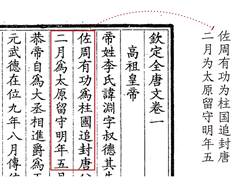 佐周有功为柱国追封唐
二月为太原留守明年五
欽定全唐文卷一
高祖皇帝
帝姓李氏諱淵字叔德其
佐周有功為柱國追封唐
二月為太原留守明年五
恭帝自為大丞相進爵為
元武德在位九年八月傳